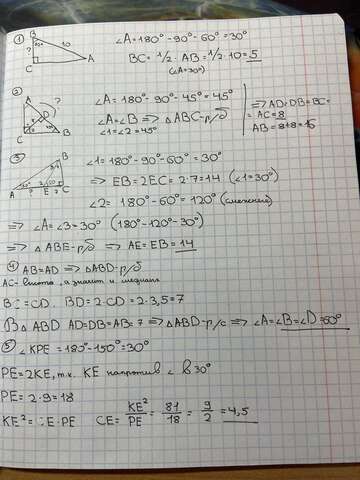 ① ∠A = 180° - 90° - 60° = 30°
BC = 1/2 · AB = 1/2 · 10 = 5
(∠A = 30°)
B
60°
10
?
C
A
②
∠A = 180° - 90° - 45° = 45°
∠A = ∠B ⇒ △ABC - р/б
∠1 = ∠2 = 45°
⇒ AD = DB = BC =
= AC = 8
AB = 8 + 8 = 16
A
?
D
8
C
B
③ ∠1 = 180° - 90° - 60° = 30°
⇒ EB = 2EC = 2 · 7 = 14 (∠1 = 30°)
∠2 = 180° - 60° = 120° (смежные)
B
A
?
E
7
C
⇒ ∠A = ∠3 = 30° (180° - 120° - 30°)
⇒ △ABE - р/б ⇒ AE = EB = 14
④ AB = AD ⇒ △ABD - р/б
AC - высота, а значит и медиана
BC = CD. BD = 2 · CD = 2 · 3,5 = 7
В △ABD AD = DB = AB = 7 ⇒ △ABD - р/с ⇒ ∠A = ∠B = ∠D = 60°
⑤ ∠KPE = 180° - 150° = 30°
PE = 2KE, т.к. KE напротив ∠ в 30°
PE = 2 · 9 = 18
KE² = CE · PE CE = KE²/PE = 81/18 = 9/2 = 4,5